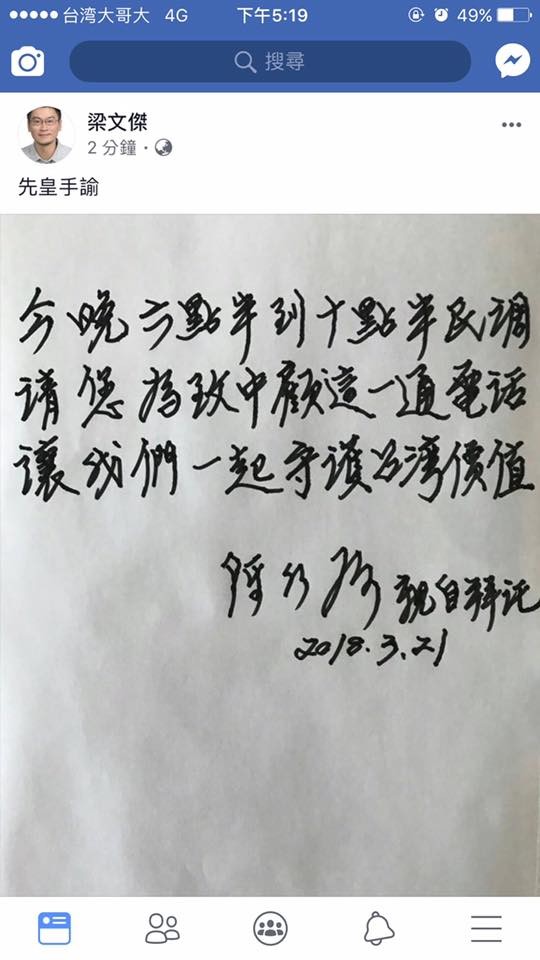 台湾大哥大 4G 下午5:19 49%
搜尋
梁文傑
2 分鐘
先皇手諭
今晚六點半到十點半民調
請您為致中顧這一通電話
讓我們一起守護台灣價值
陳水扁 親自拜託
2018.3.21